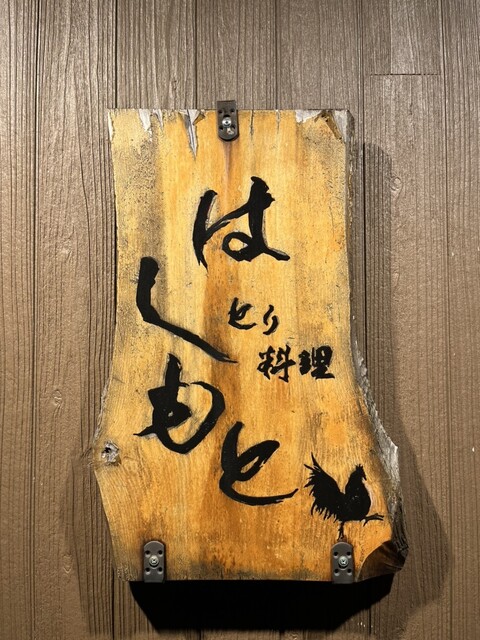 はしもと
とり
料理